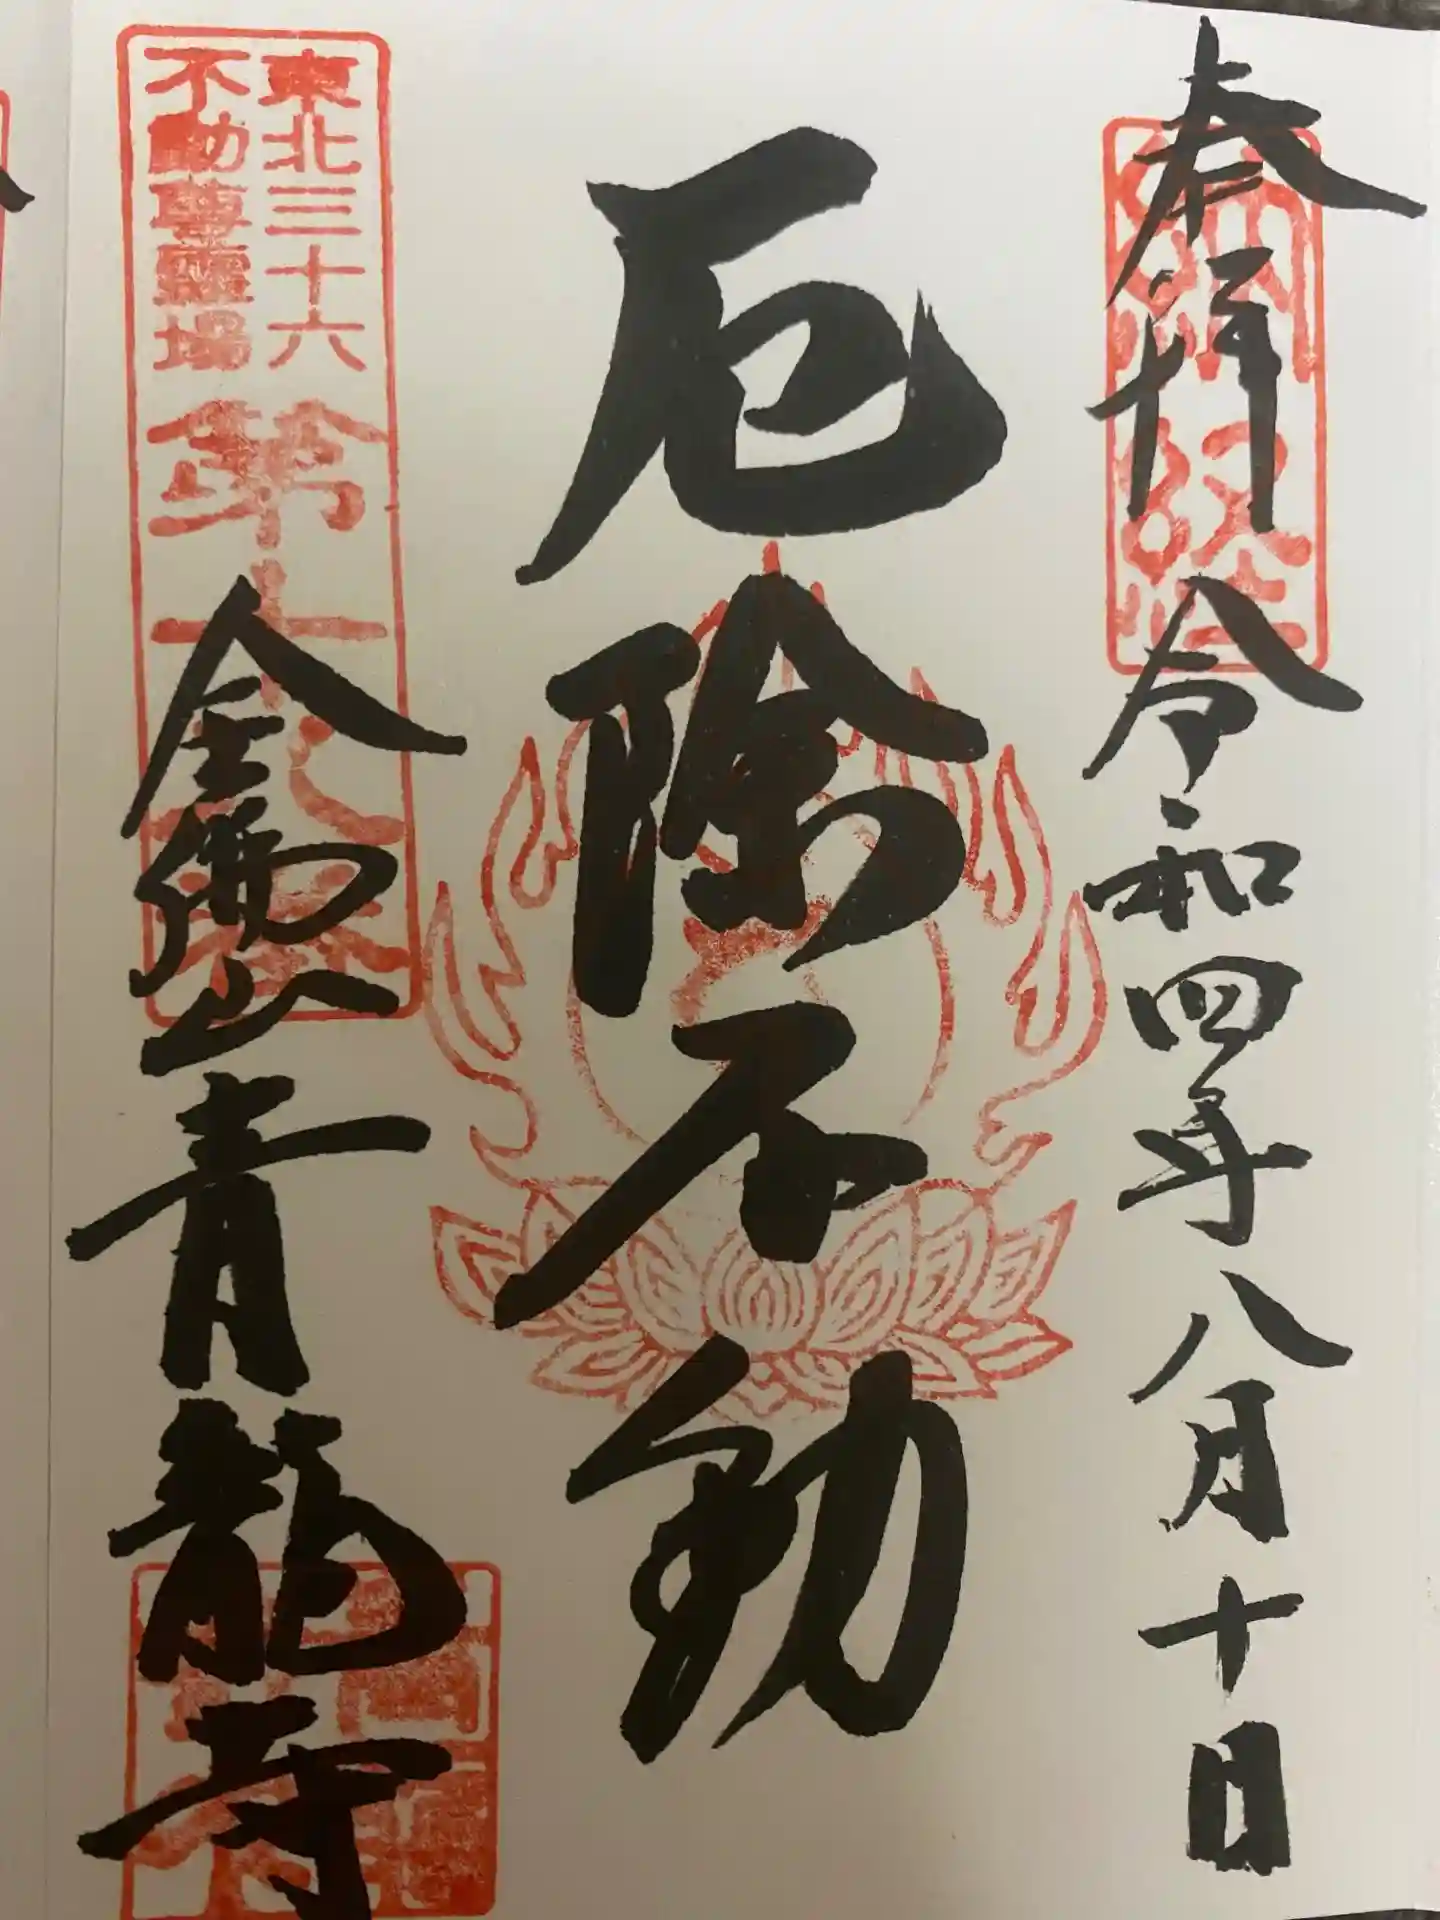 奉拝
令和四年八月十日
厄除不動
東北三十六
不動尊霊場
第十八番
金剛山
青龍寺